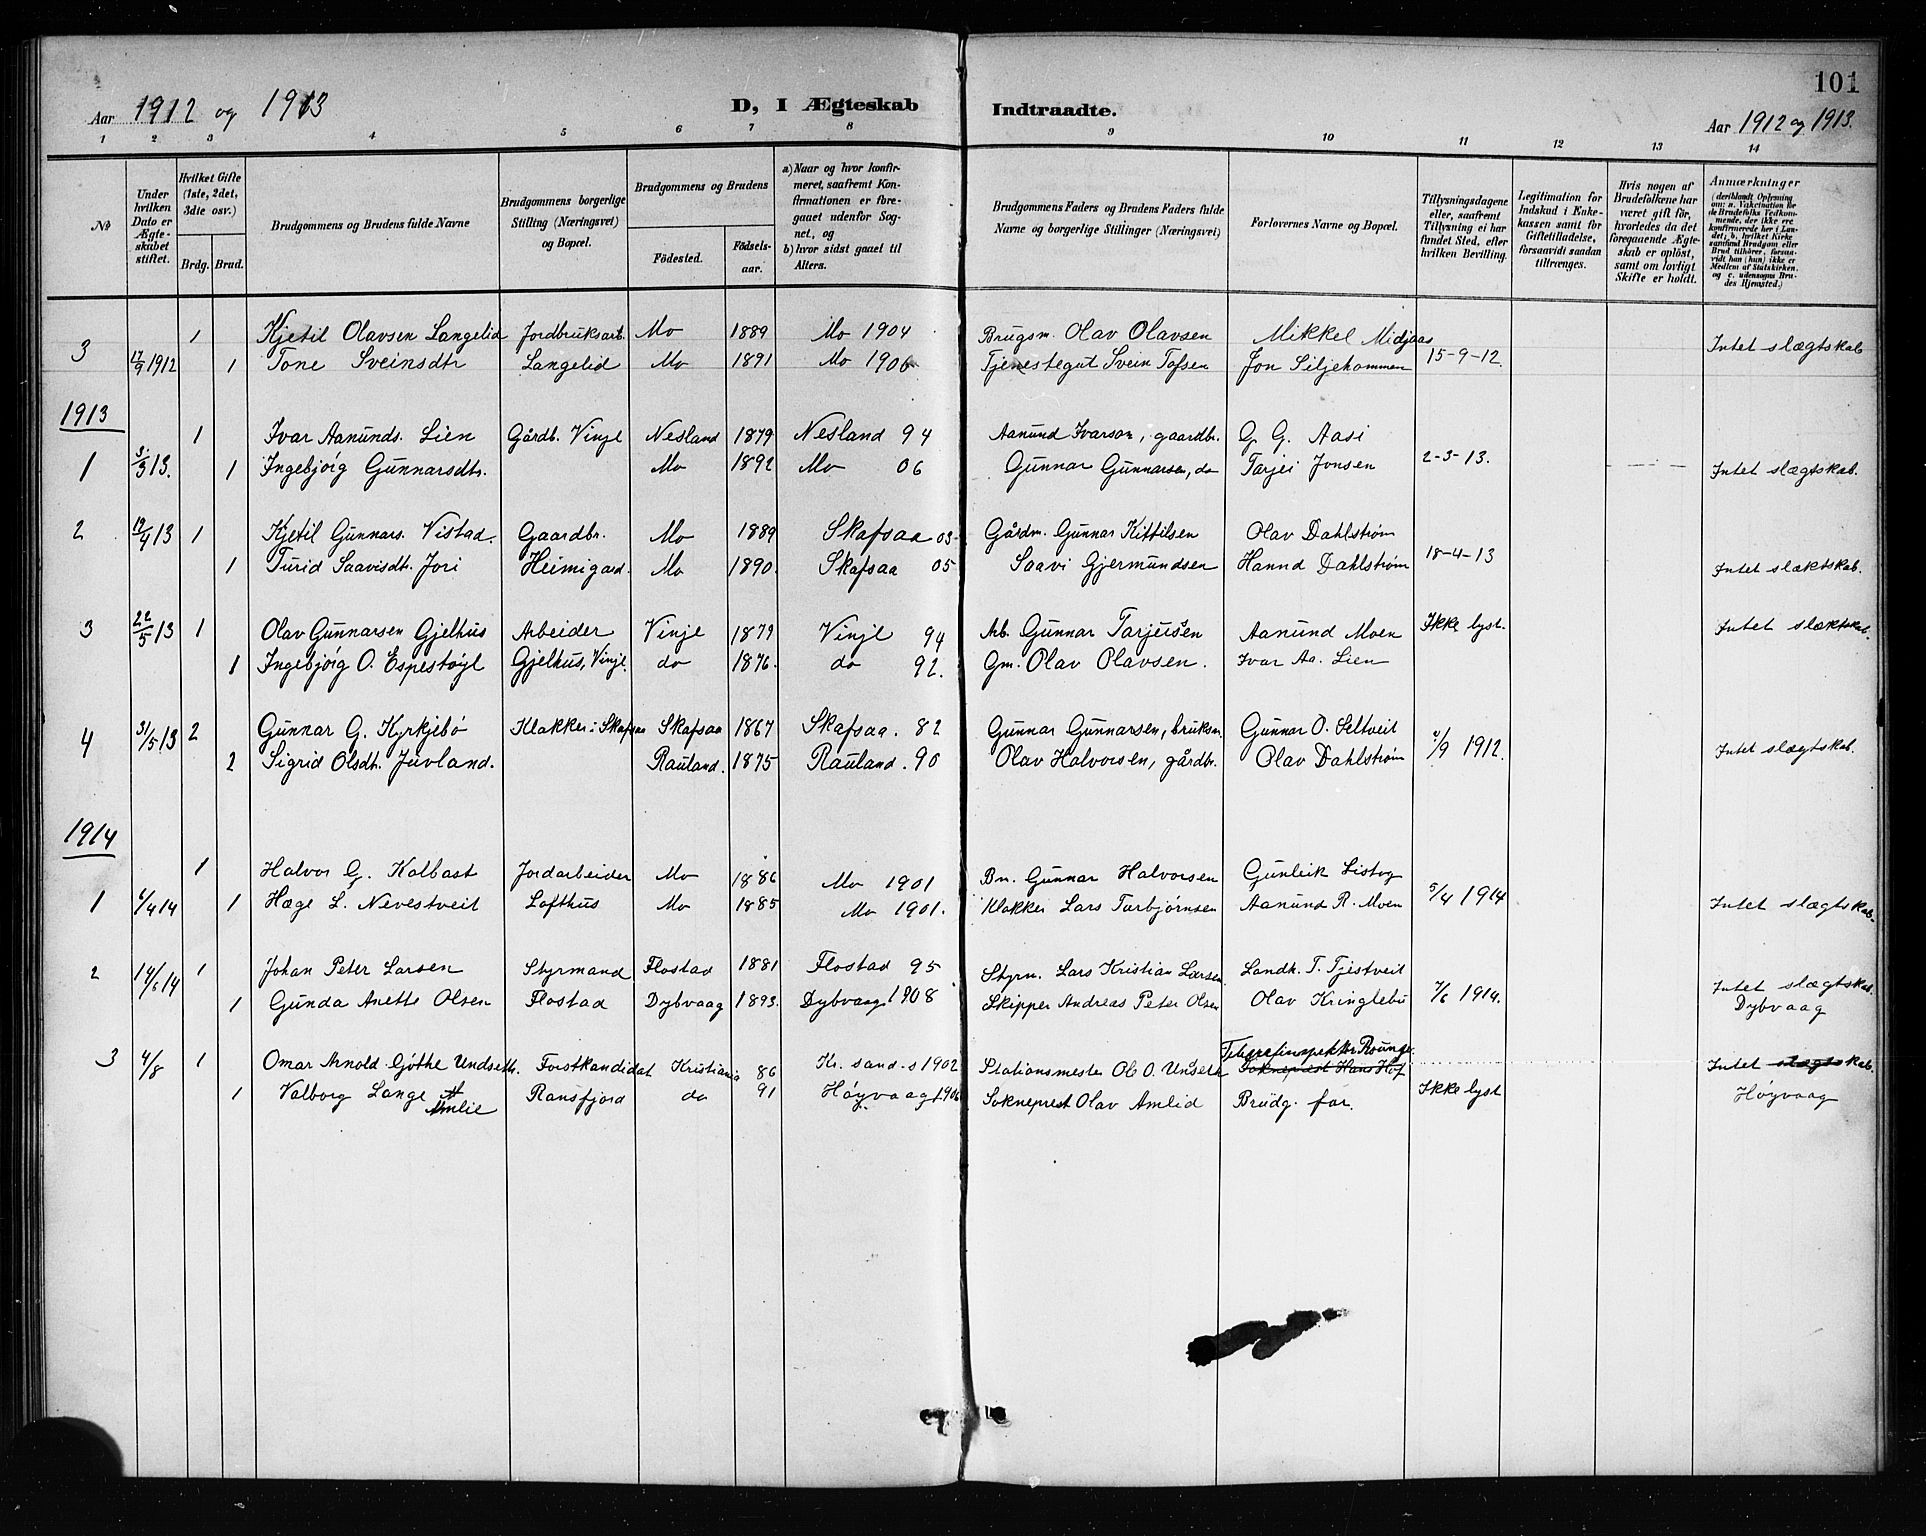 101
Aar 1912 og 1913 D, I Ægteskab Indtraadte. Aar 1912 og 1913.
1 2 3 4 5 6 7 8 9 10 11 12 13 14
№
Under hvilken Dato er Ægteskabet stiftet.
Hvilket Gifte (1ste, 2det, 3die osv.)
Brdg. Brud.
Brudgommens og Brudens fulde Navne
Brudgommens borgerlige Stilling (Næringsvei) og Bopæl.
Brudgommens og Brudens
Fødested. Fødselsaar.
a) Naar og hvor konfirmeret, saafremt Konfirmationen er foregaaet udenfor Sognet, og
b) hvor sidst gaaet til Alters.
Brudgommens Faders og Brudens Faders fulde Navne og borgerlige Stillinger (Næringsvei)
Forlovernes Navne og Bopæl.
Tillysningsdagene eller, saafremt Tillysning ei har fundet Sted, efter hvilken Bevilling.
Legitimation for Indskud i Enkekassen samt for Giftetilladelse, forsaavidt saadan tiltrænges.
Hvis nogen af Brudefolkene har været gift før, hvorledes da det foregaaende Ægteskab er opløst, samt om lovligt Skifte er holdt.
Anmærkninger (deriblandt Oplysning om: a. Vaccination for de Brudefolks Vedkommende, der ikke ere konfirmerede her i Landet; b. hvilket Kirkesamfund Brudgom eller Brud tilhører, forsaavidt han (hun) ikke er Medlem af Statskirken, og c. udensogns Brudes Hjemsted.)
1 Kjetil Olavsen Langelid Jordbruksarb. Mo 1889 Mo 1904 Brugsm. Olav Olavsen Mikkel Midjaas
3 17/9 1912 1 Tone Sveinsdtr Langelid Mo 1891 Mo 1906 Tjenestegut Svein Tofsen Jon Siljekammen 15-9-12. Intet slægtskab
1913
1 Ivar Aanunds. Lien Gårdb. Vinje Nesland 1879 Nesland 94 Aanund Ivarson, gaardbr. G. G. Aasi
1 3/3 13. 1 Ingebjörg Gunnarsdtr. Mo 1892 Mo 06 Gunnar Gunnarsen, do Tarjei Jonsen 2-3-13. Intet slægtskab.
2 19/4 13 1 Kjetil Gunnars. Vistad. Gaardbr. Mo 1889 Skafsaa 03 Gårdm. Gunnar Kittilsen Olav Dahlstrøm
1 Turid Saavisdt. Jori Heimigard. Mo 1890. Skafsaa 05 Saavi Gjermundsen Hannd Dahlstrøm 18-4-13 Intet slæktskab.
3 22/5 13 1 Olav Gunnarsen Gjelhus Arbeider Vinje 1879 Vinje 94 Arb. Gunnar Tarjeisen Aanund Moen Ikke lyst. Intet slæktskab.
1 Ingebjörg O. Espestöyl Gjelhus, Vinje. do 1876. do 92. Gm. Olav Olavsen. Ivar Aa. Lien
4 31/5 13 2 Gunnar G. Kyrkjebö Klokker i Skafsaa Skafsaa 1867 Skafsaa. 82 Gunnar Gunnarsen, bruksm. Gunnar O. Seltveit
2 Sigrid Olsdt. Juvland. Rauland. 1875 Rauland. 90 Olav Halvorsen, gårdbr. Olav Dahlstrøm /9 1912. Intet slægtskab.
1914
1 Halvor G. Kolbast Jordarbeider Mo 1886 Mo 1901 Bn. Gunnar Halvorsen Gunleik Listog
1 6/4 14 1 Hæge L. Nevestveit Lofthus Mo 1885 Mo 1901. Klokker Lars Torbjørnsen Aanund R. Moen 5/4 1914 Intet slægtskab.
2 14/6 14 1 Johan Peter Larsen Styrmand Flostad 1881 Flostad 95 Styrm. Lars Kristian Larsen Landh. T. Tjestveit
1 Gunda Anette Olsen Flostad Dybvaag 1893. Dybvaag 1908 Skipper Andreas Peter Olsen Olav Kringlebu 7/6 1914. Intet slægtskab. Dybvaag
3 4/8 1 Omar Arnold Göthe Undseth. Forstkandidat Kristiania 86 Kr. sand.s 1902 Stationsmester Ole O. Unseth Telegrafinspektör Rounge Sokneprest Hans Hof Intet slægtskab.
1 Valborg Lange Amlie Ransfjord do 91 Høyvaag 1906 Sokneprest Olav Amlid Brudg. far. Ikke lyst Höyvaag